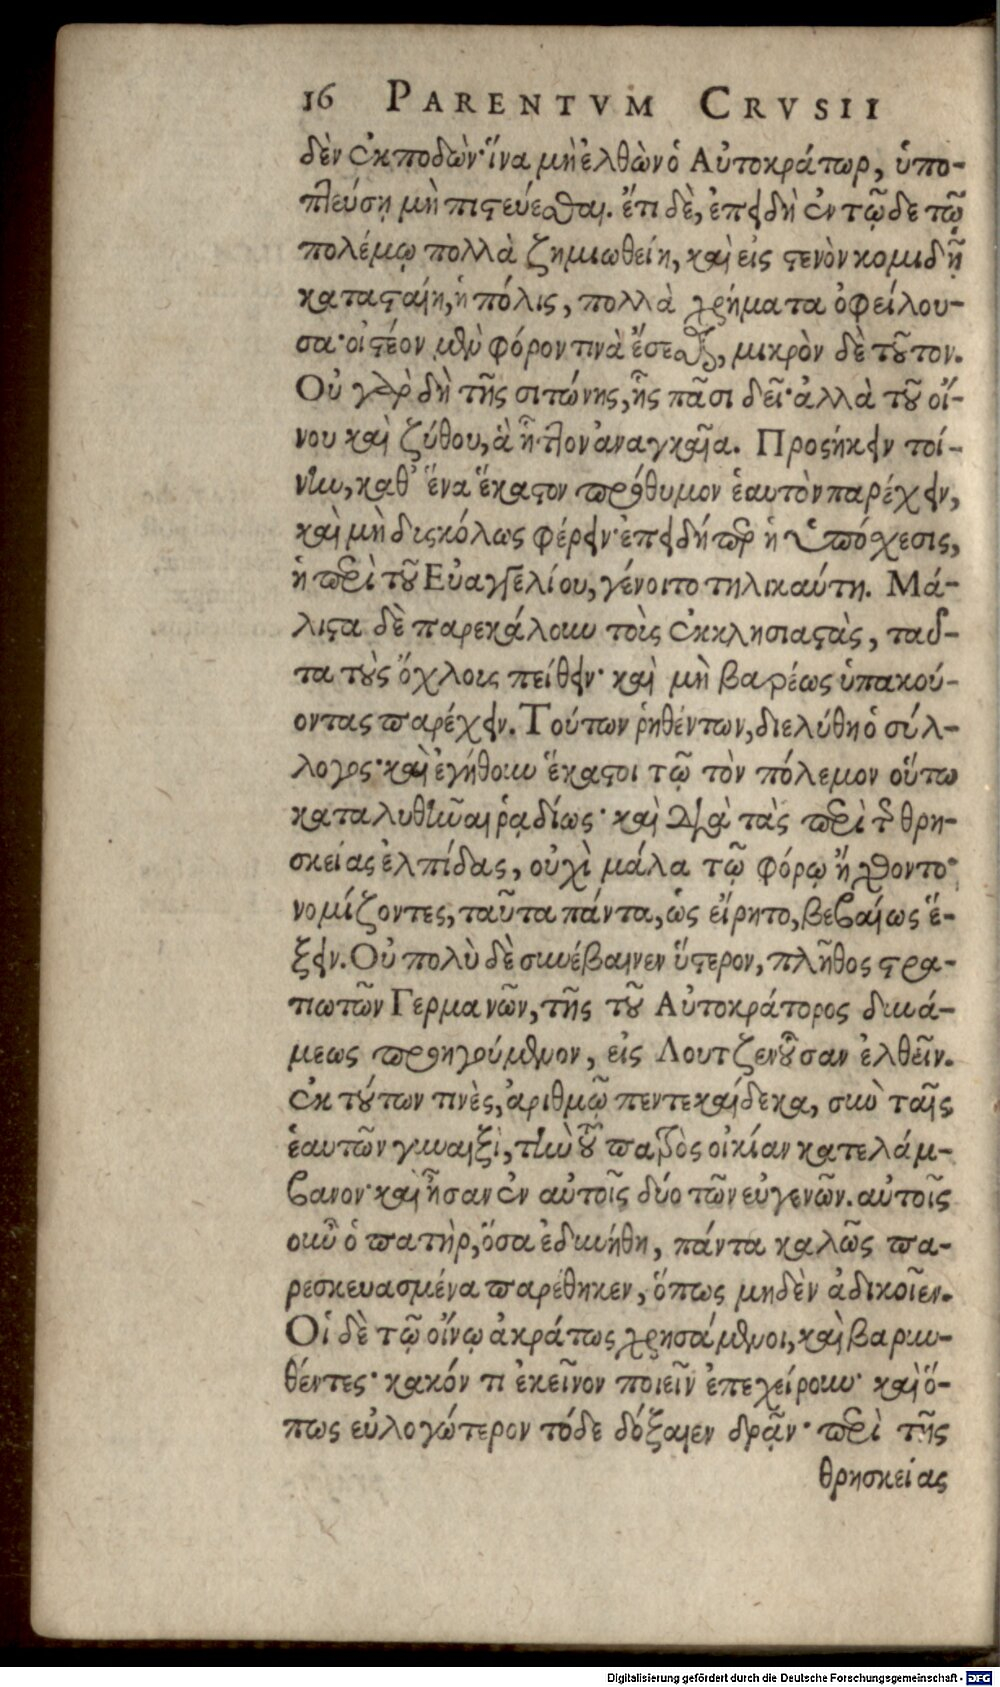 16 PARENTVM CRVSII
δὲν ἐκποδὼν· ἵνα μὴ ἐλθὼν ὁ Αὐτοκράτωρ, ὑπο-
πτεύσῃ μὴ πιςεύεσθαι. ἔτι δὲ, ἐπειδὴ ἐν τῷδε τῷ
πολέμῳ πολλὰ ζημιωθείη, καὶ εἰς ςενὸν κομιδῇ
καταςαίη, ἡ πόλις, πολλὰ χρήματα ὀφείλου-
σα· οἰςέον μὲν φόρον τινὰ ἔσεσθαι, μικρὸν δὲ τοῦτον.
Οὐ γὰρ δὴ τῆς σιτώνης, ἧς πᾶσι δεῖ· ἀλλὰ τοῦ οἴ-
νου καὶ ζύθου, ἃ ἧττον ἀναγκαῖα. Προςήκειν τοί-
νυν, καθ' ἕνα ἕκαςον πρόθυμον ἑαυτὸν παρέχειν,
καὶ μὴ διςκόλως φέρειν· ἐπειδήπερ ἡ ὑπόχεσις,
ἡ περὶ τοῦ Εὐαγγελίου, γένοιτο τηλικαύτη. Μά-
λιςα δὲ παρεκάλουν τοὶς ἐκκλησιαςὰς, ταῦ-
τα τοὺς ὄχλους πείθειν· καὶ μὴ βαρέως ὑπακού-
οντας παρέχειν. Τούτων ῥηθέντων, διελύθη ὁ σύλ-
λογος· καὶ ἐγήθουν ἕκαςοι τῷ τὸν πόλεμον οὕτω
καταλυθῆναι ῥᾳδίως· καὶ διὰ τὰς περὶ τῆς θρη-
σκείας ἐλπίδας, οὐχὶ μάλα τῷ φόρῳ ἤχθοντο·
νομίζοντες, ταῦτα πάντα, ὡς εἴρητο, βεβαίως ἕ-
ξειν. Οὐ πολὺ δὲ συνέβαινεν ὕςερον, πλῆθος ςρα-
τιωτῶν Γερμανῶν, τῆς τοῦ Αὐτοκράτορος δυνά-
μεως προηγούμενον, εἰς Λουτζενοῦσαν ἐλθεῖν.
ἐκ τούτων τινὲς, ἀριθμῷ πεντεκαίδεκα, σὺν ταῖς
ἑαυτῶν γυναιξὶ, τὴν τοῦ πατρὸς οἰκίαν κατελάμ-
βανον· καὶ ἦσαν ἐν αὐτοῖς δύο τῶν εὐγενῶν. αὐτοῖς
οὖν ὁ πατὴρ, ὅσα ἐδυνήθη, πάντα καλῶς πα-
ρεσκευασμένα παρέθηκεν, ὅπως μηδὲν ἀδικοῖεν.
Οἱ δὲ τῷ οἴνῳ ἀκράτως χρησάμενοι, καὶ βαρυν-
θέντες· κακόν τι ἐκεῖνον ποιεῖν ἐπεχείρουν· καὶ ὅ-
πως εὐλογώτερον τόδε δόξαιεν δρᾷν· περὶ τῆς
θρησκείας
Digitalisierung gefördert durch die Deutsche Forschungsgemeinschaft - DFG